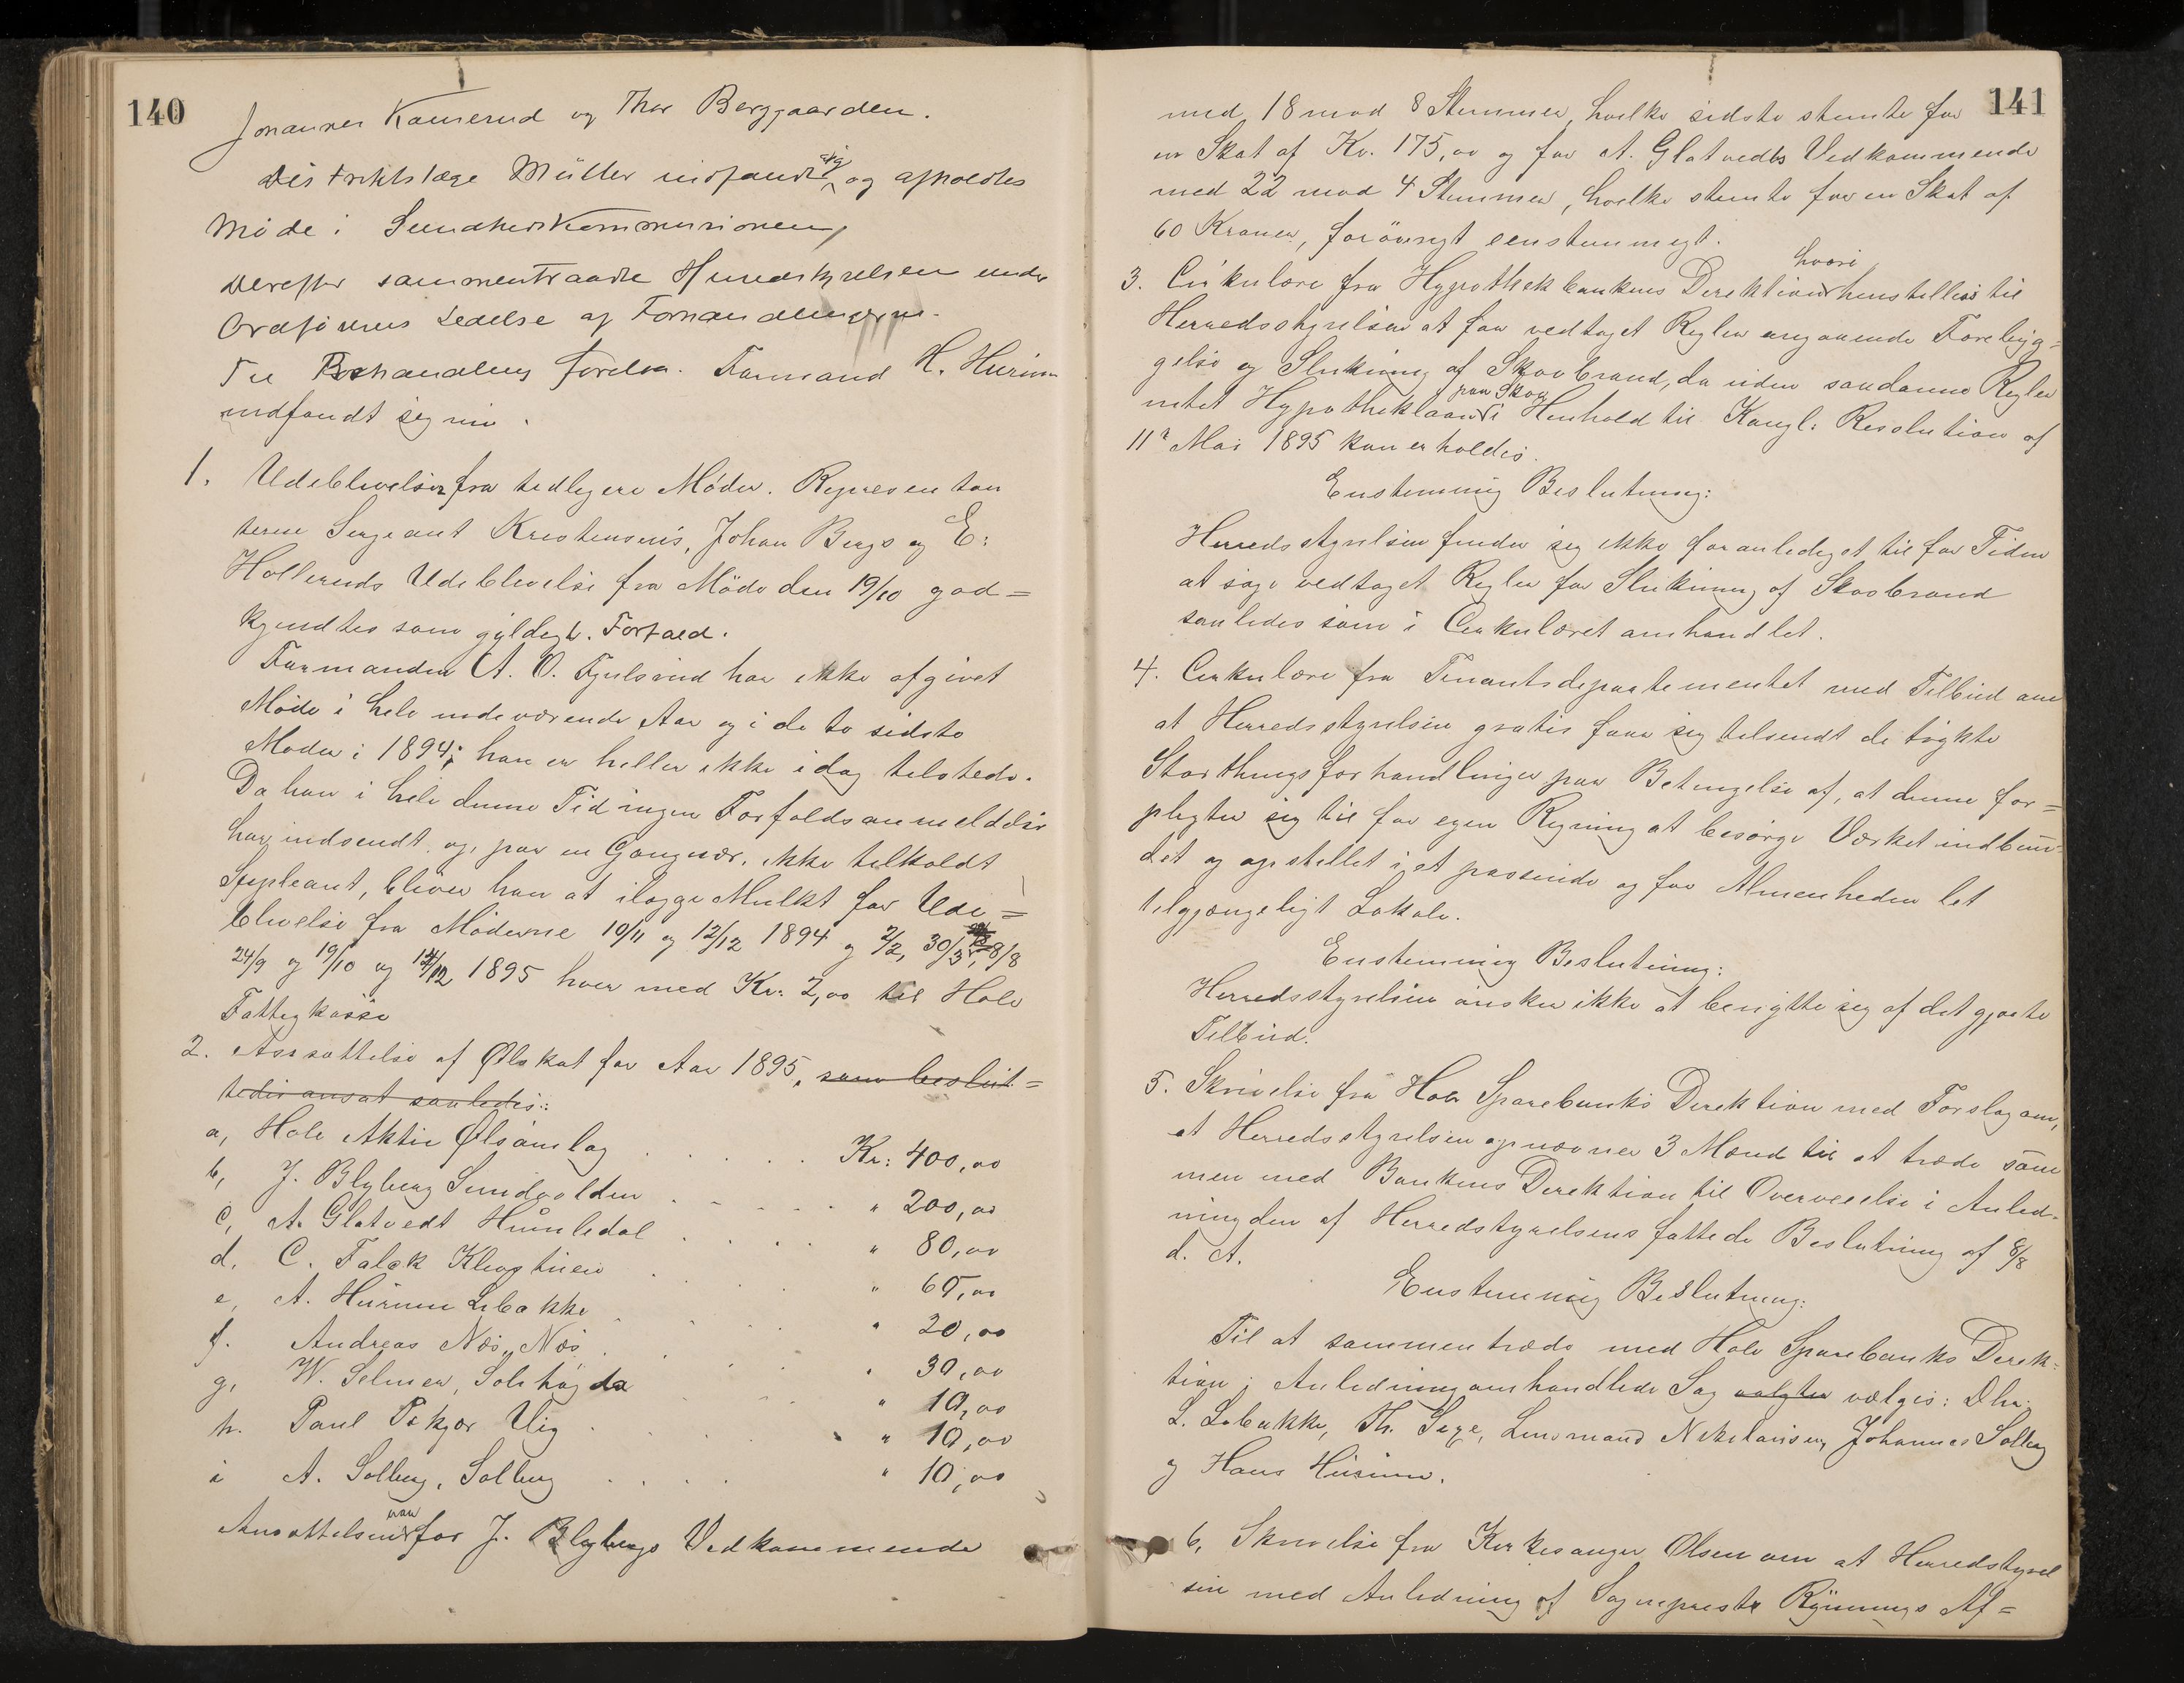 140
Johannes Kamerud og Thor Berggaarden.
Distriktslæge Müller indfandt sig og afholdtes
Møde i Sundhedskommissionen,
Derefter sammentraadte Herredsstyrelsen under
Ordførerens Ledelse af Forhandlingerne.
Til Behandling forelaa. Formand H. Hurum
indfandt sig nu.
1. Udeblivelser fra tidligere Møder. Represen tan
terne Sergeant Kristensens, Johan Bergs og E.
Hollerud's Udeblivelse fra Møde den 19/10 god=
kjendtes som gyldigt. Forfald.
Formanden A. O. Fjulsrud har ikke afgivet
Møde i hele indeværende Aar og i de to sidste
Møder i 1894; han er heller ikke idag tilstede.
Da han i hele denne Tid ingen Forfaldsanmeldelse
har indsendt og, paa en Gang nær, ikke tilkaldt
Supleant, bliver han at ilægge Mulkt for Ude=
blivelse fra Møderne 10/11 og 12/12 1894 og 2/2, 30/3, 8/8
24/9 og 19/10 og 14/12 1895 hver med Kr. 2,00 til Hole
Fattigkasse
2. Ansættelse af Ølskat for Aar 1895, som beslut=
tedes ansat saaledes:
a, Hole Aktie Ølsamlag . . . . . Kr: 400,00
b, J. Blyberg Sundvolden . . . . . " 200,00
c, A. Glatvedt Humledal . . . . " 80,00
d. C. Falck Klogstuen . . . " 60,00
e, A. Hurum Libakke . . . . " 20,00
f. Andreas Næs, Næs . . . . " 30,00
g, W. Selmer, Solihøgda . . . " 10,00
h. Paul Pokjær Vig . . . . " 10,00
i A. Solberg, Solberg . . . . " 10,00
Ansættelsen var for J. Blybergs Vedkommende
141
med 18 mod 8 Stemmer, hvilke sidste stemte for
en Skat af Kr. 175,00 og for A. Glatvedts Vedkommende
med 22 mod 4 Stemmer, hvilke stemte for en Skat af
60 Kroner, forøvrigt eenstemmigt.
3. Cirkulære fra Hypothekbankens Direktion hvori henstilles til
Herredsstyrelsen at faa vedtaget Regler angaaende Forebyg=
gelse og Slukning af Skovbrand, da uden saadanne Regler
intet Hypotheklaan paa Skov i Henhold til Kongl: Resolution af
11te Mai 1895 kan erholdes.
Enstemmig Beslutning:
Herredsstyrelsen finder sig ikke foranlediget til for Tiden
at søge vedtaget Regler for Slukning af Skovbrand
saaledes som i Cirkulæret omhandlet.
4. Cirkulære fra Finantsdepartementet med Tilbud om
at Herredsstyrelsen gratis faar sig tilsendt de trykte
Storthingsforhandlinger paa Betingelse af, at denne for=
pligter sig til for egen Regning at besørge Værket indbun
det og opstillet i et passende og for Almenheden let
tilgjængeligt Lokale.
Enstemmig Beslutning:
Herredsstyrelsen ønsker ikke at benytte sig af det gjorte
Tilbud.
5. Skrivelse fra Hole Sparebanks Direktion med Forslag om,
at Herredsstyrelsen opnævner 3 Mænd til at træde sam
men med Bankens Direktion til Overveielse i Anled-
ning den af Herredsstyrelsens fattede Beslutning af 8/8
d. A.
Enstemmig Beslutning:
Til at sammentræde med Hole Sparebanks Direk=
tion i Anledning omhandlede Sag valgtes vælges: Dhr.
L. Libakke, Th. Gege, Lensmand Nikolaisen, Johannes Solberg
og Hans Hurum.
6, Skrivelse fra Kirkesanger Olsen om at Herredstyrel
sen med Anledning af Sogneprest Rynnings Af=